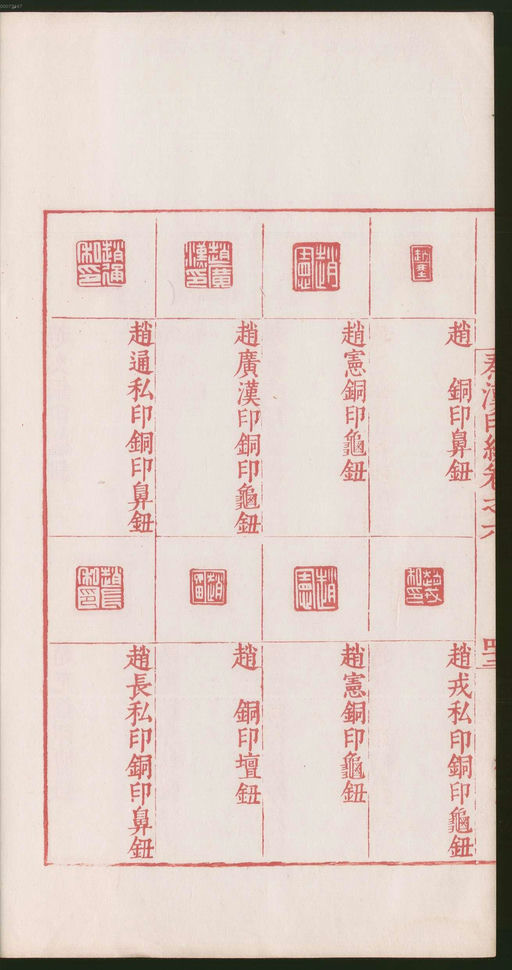 秦漢印統卷之六
趙　銅印鼻鈕
趙憲銅印龜鈕
趙廣漢印銅印龜鈕
趙通私印銅印鼻鈕
趙戎私印銅印龜鈕
趙憲銅印龜鈕
趙　銅印壇鈕
趙長私印銅印鼻鈕